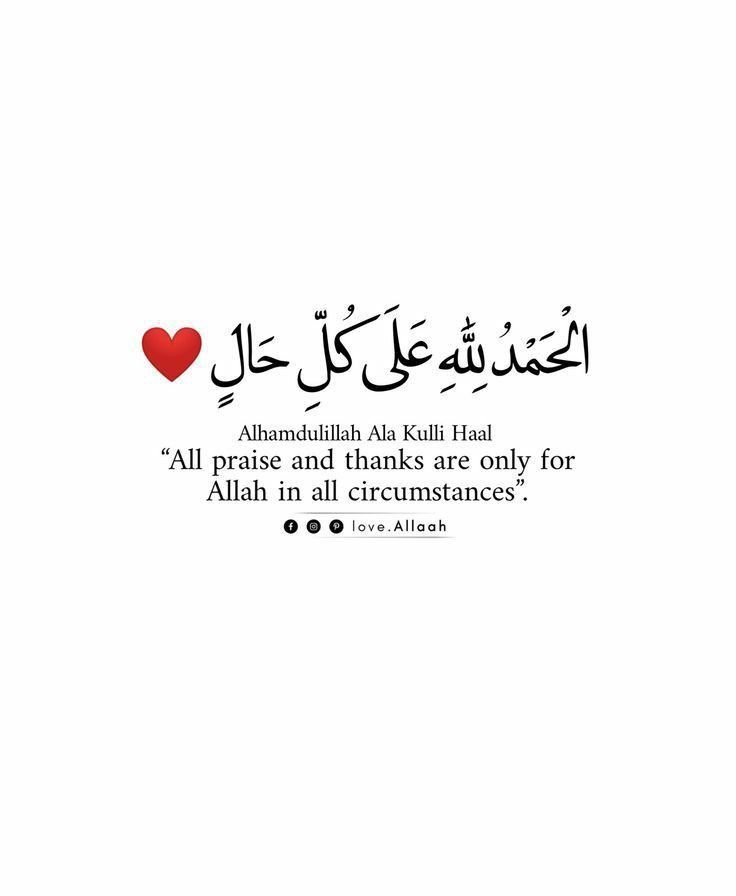 الْحَمْدُ لِلّٰهِ عَلَى كُلِّ حَالٍ ❤️
Alhamdulillah Ala Kulli Haal
“All praise and thanks are only for
Allah in all circumstances”.
love.Allaah